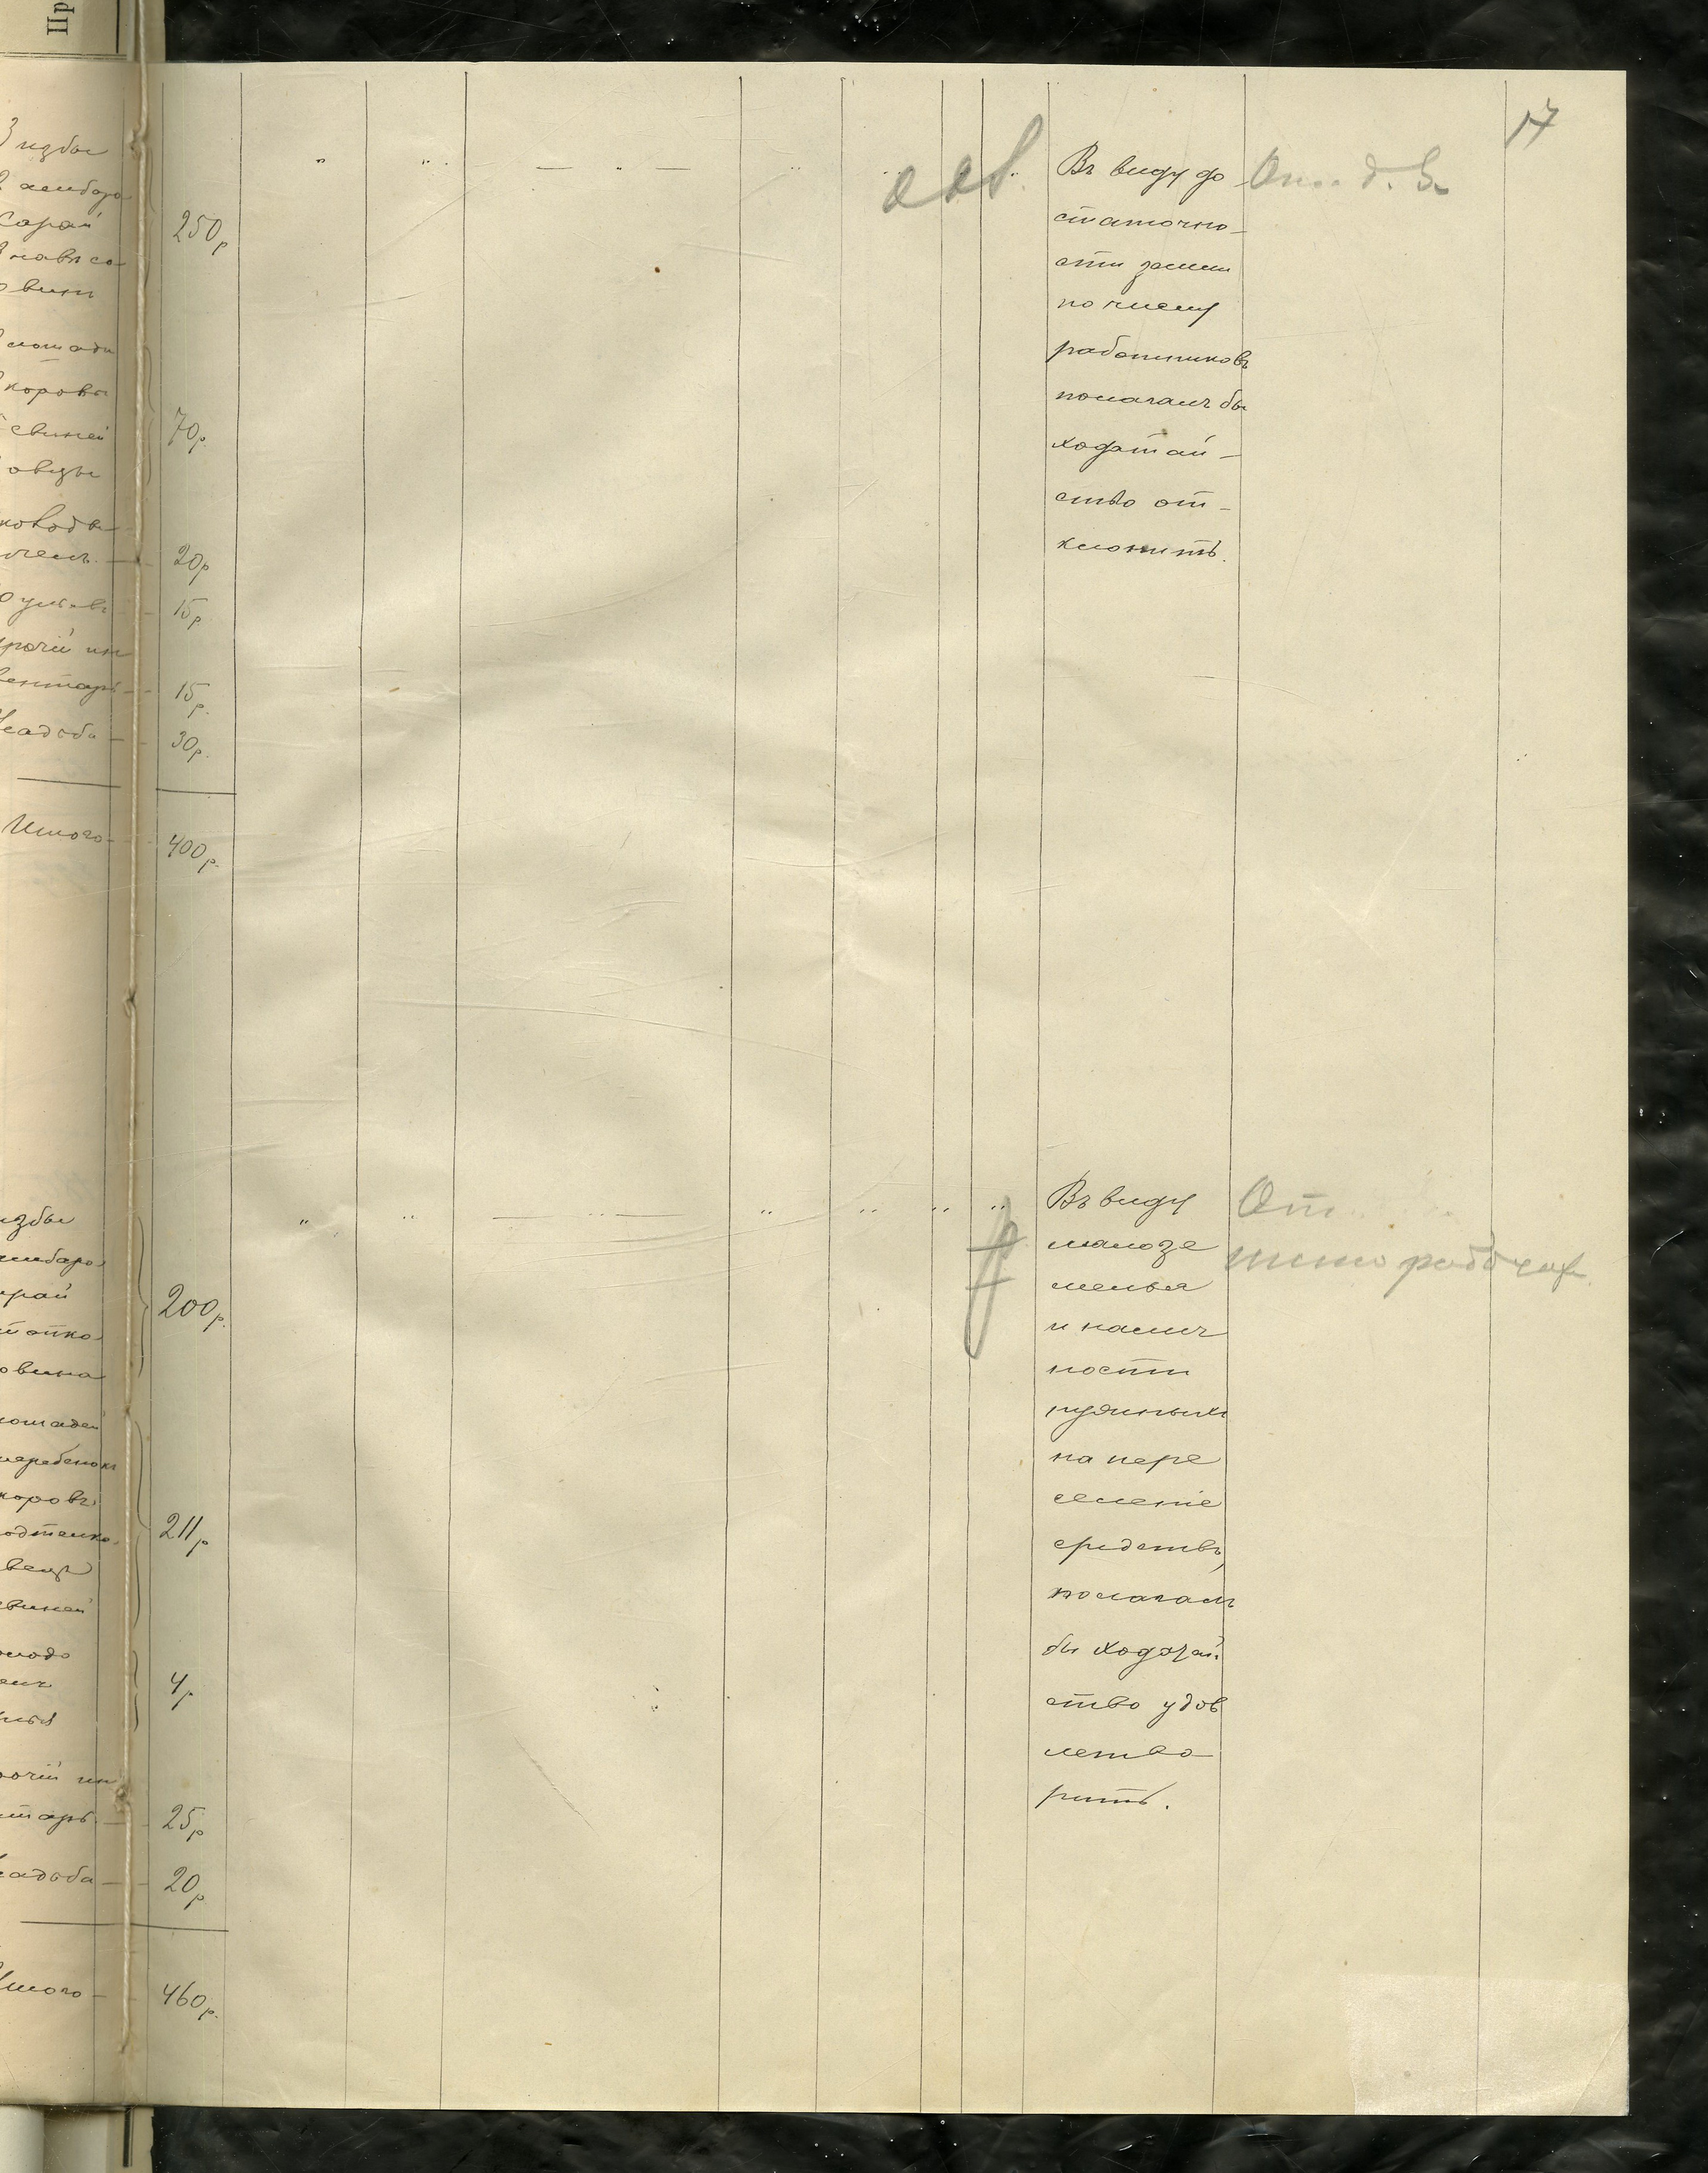 Пр
17
3 избы
амбара
сарай
250 р
навѣса
овинъ
лошади
коровы
свиней
овцы
70 р.
колодъ
пчелъ
20 р
ульевъ
15 р.
прочій ин
вентарь
15 р.
Усадьба
30 р.
Итого
400 р.
Въ виду до
статочно-
сти земли
по числу
работниковъ
полагалъ бы
ходатай-
ство от-
клонить.
избы
амбара
сарай
200 р.
овина
лошадей
жеребенокъ
коровъ
211 р
овецъ
свиней
4 р
прочій ин
вентарь
25 р
Усадьба
20 р
Итого
460 р.
Въ виду
малозе
мелья
и налич
ности
нужныхъ
на пере
селеніе
средствъ,
полагалъ
бы ходатай
ство удов
летво-
рить.
рабочих